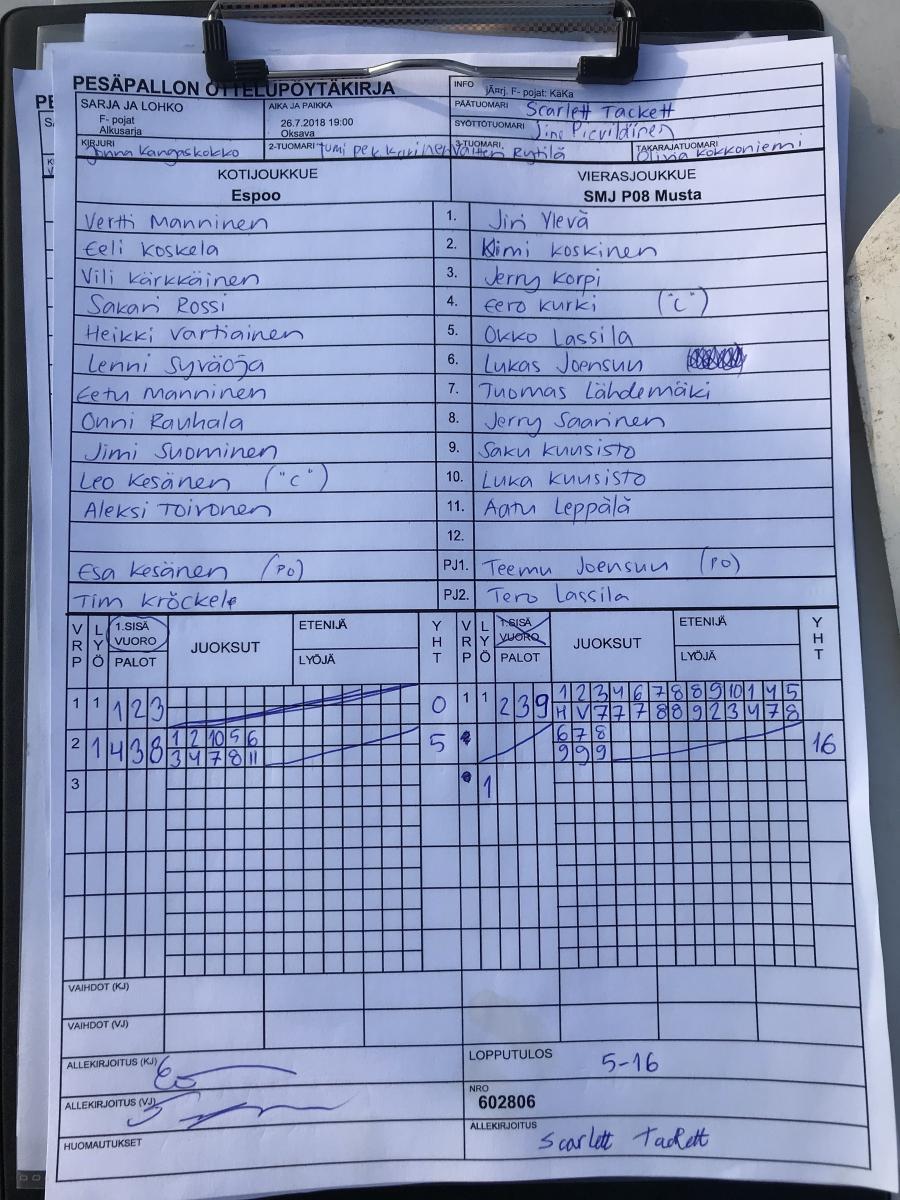 PESÄPALLON OTTELUPÖYTÄKIRJA
INFO jÃ¤rj. F- pojat: KäKa
SARJA JA LOHKO
F- pojat
Alkusarja
AIKA JA PAIKKA
26.7.2018 19:00
Oksava
PÄÄTUOMARI Scarlett Tackett
SYÖTTÖTUOMARI
KIRJURI Jonna Kangaskokko
2-TUOMARI
3-TUOMARI Valtteri Rytilä
TAKARAJATUOMARI Olivia Kokkoniemi
KOTIJOUKKUE VIERASJOUKKUE
Espoo SMJ P08 Musta
Vertti Manninen 1. Jiri Ylevä
Eeli Koskela 2. Kimi Koskinen
Vili Kärkkäinen 3. Jerry Korpi
Sakari Rossi 4. Eero Kurki ("C")
Heikki Vartiainen 5. Okko Lassila
Lenni Syväoja 6. Lukas Joensuu
Eetu Manninen 7. Tuomas Lähdemäki
Onni Rauhala 8. Jerry Saarinen
Jimi Suominen 9. Saku Kuusisto
Leo Kesänen ("C") 10. Luka Kuusisto
Aleksi Toivonen 11. Aatu Leppälä
12.
Esa Kesänen (PO) PJ1. Teemu Joensuu (PO)
Tim Kröckel PJ2. Tero Lassila
VRP LYÖ 1.SISÄ VUORO PALOT JUOKSUT ETENIJÄ LYÖJÄ YHT VRP LYÖ 1.SISÄ VUORO PALOT JUOKSUT ETENIJÄ LYÖJÄ YHT
1 1 1 2 3 0 1 1 2 3 9 1 2 3 4 6 7 8 8 9 10 1 4 5
H V 7 7 7 8 8 9 2 3 4 7 8
2 1 4 3 8 1 2 10 5 6 5 6 7 8 16
3 4 7 8 11 9 9 9
3 1
VAIHDOT (KJ)
VAIHDOT (VJ)
ALLEKIRJOITUS (KJ)
LOPPUTULOS 5-16
ALLEKIRJOITUS (VJ)
NRO
602806
HUOMAUTUKSET
ALLEKIRJOITUS Scarlett Tackett